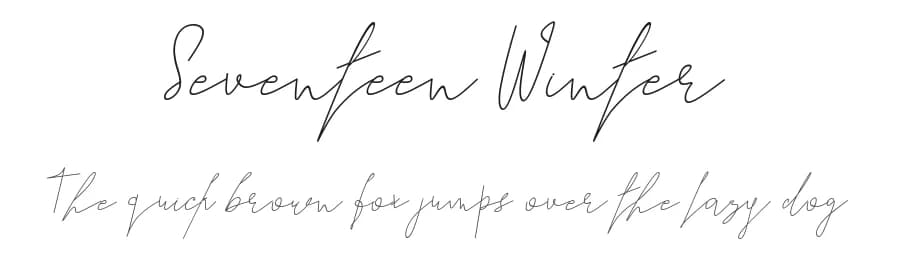 Seventeen Winter
The quick brown fox jumps over the lazy dog